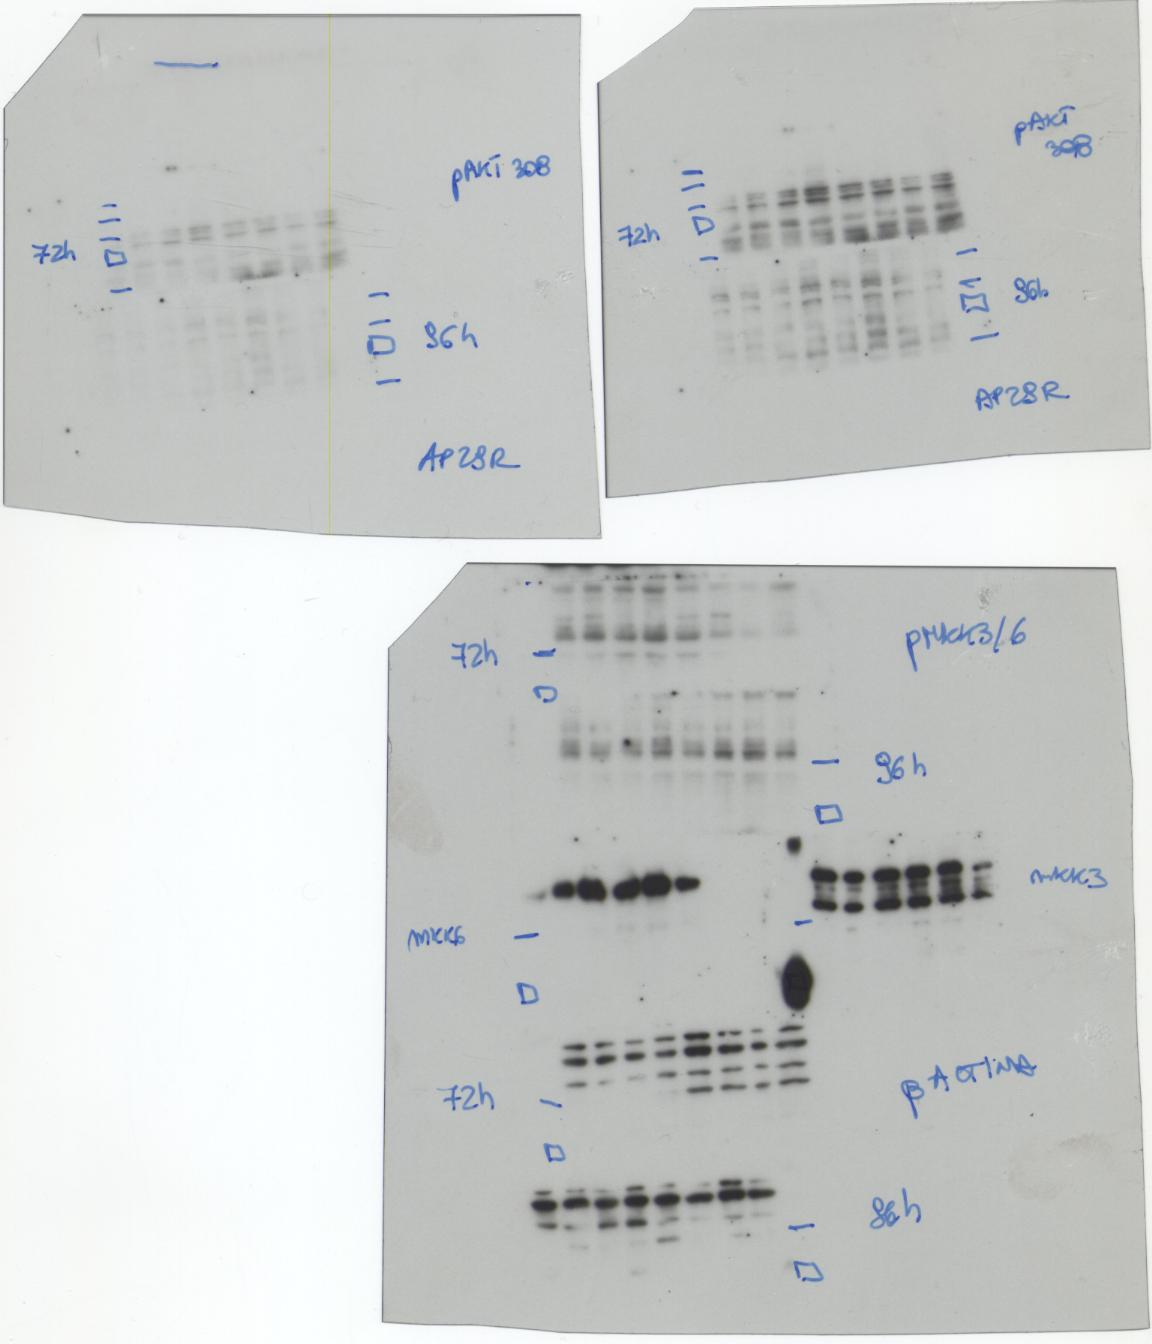 pAKT 308
72h
96h
AP28R
pAKT
308
72h
96h
AP28R
pMKK3/6
72h
96h
MKK3
MKK6
β ACTINA
72h
96h